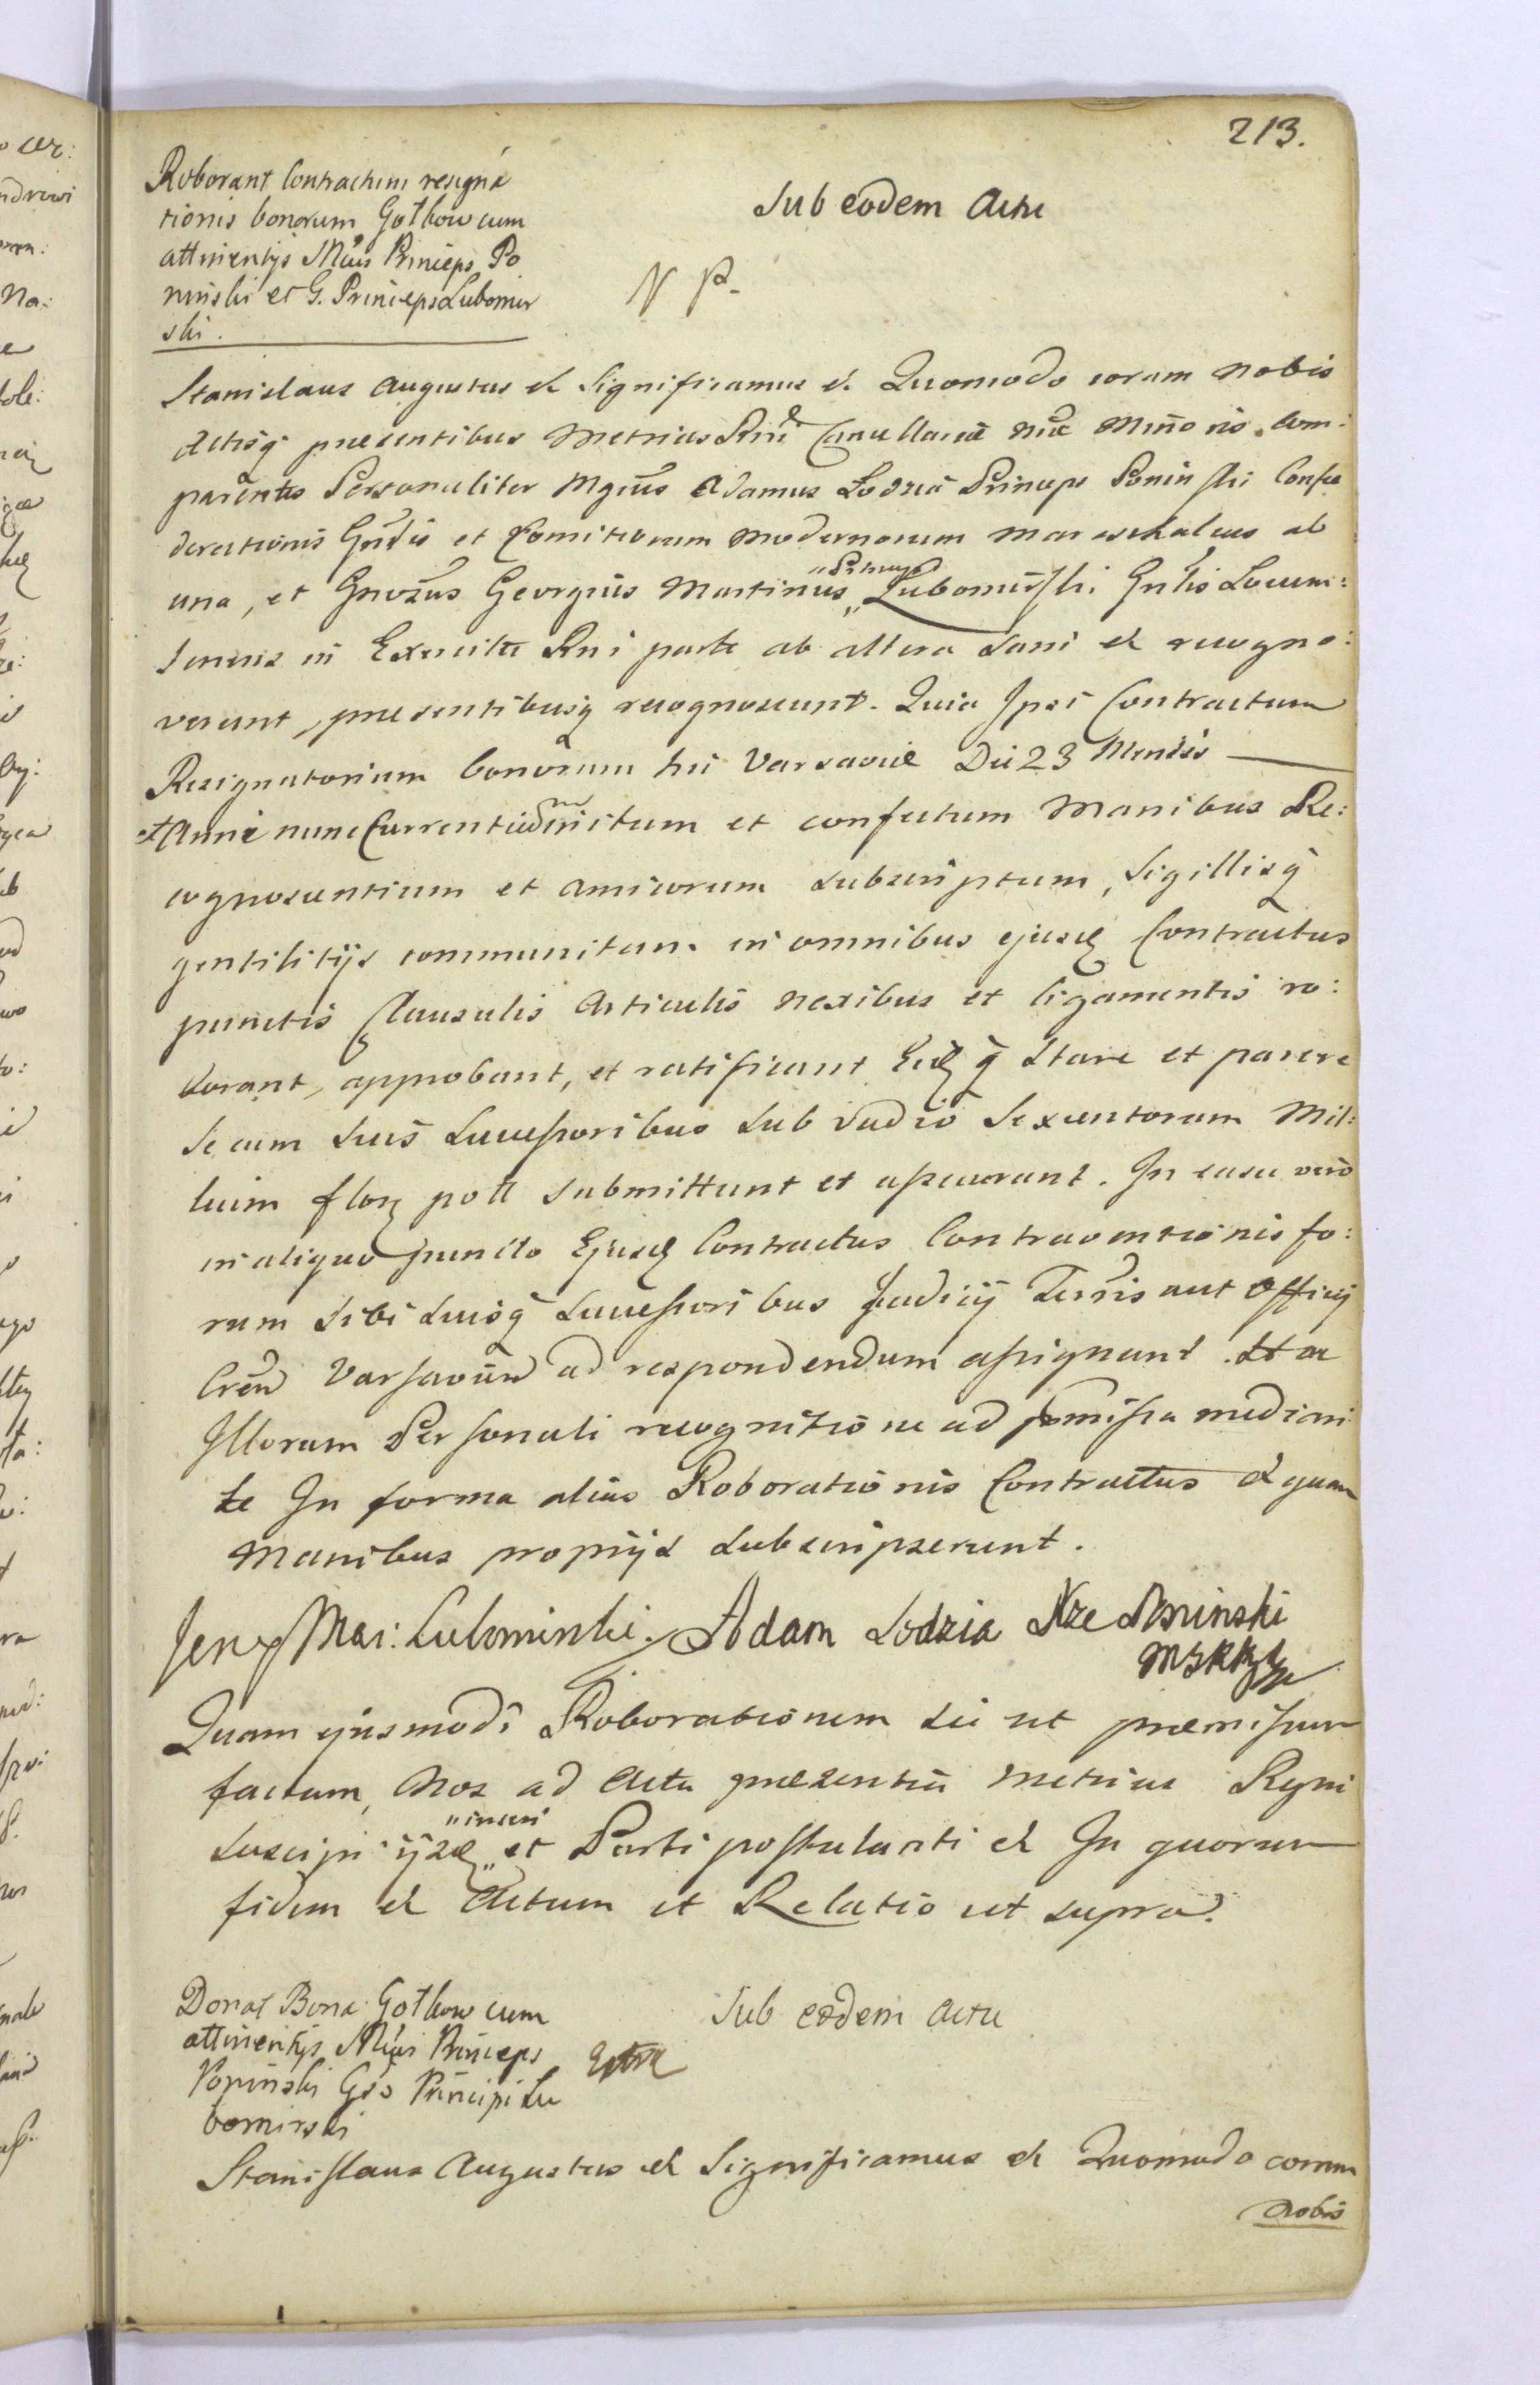 213.
Roborant Contractum resigna
tionis bonorum Gotkow cum
attinentijs Mcus Princeps Po
ninski et G. Princeps Lubomir
ski.
Sub eodem Actu
Stanislaus Augustus et Significamus et Quomodo coram Nobis
Actisq presentibus Metrices Rni Cancellariæ Mie Minoris Com:
parentes Personaliter Mgcus Adamus Lodzia Princeps Poninski Confæ
derationis Gnlis et Comitiorum modernorum Mareschalcus ab
una, et Gnosus Georgius Martinus „Princeps„ Lubomirski Gnlis Locum:
tenens in Exercitu Rni parte ab altera Sani et recogno:
verunt, presentibusq recognoscunt. Quia Ipsi Contractum
Resignatorium bonorum hic Varsaviæ Die 23 Mensis —
et Anni nunc Currentium initum et confectum Manibus Re:
cognoscentium et amicorum subscriptum, Sigillisq
gentilitijs communitum in omnibus ejusd Contractus
punctis Clausulis Articulis nexibus et ligamentis ro:
borant, approbant, et ratificant Eidq Stare et parere
se cum suis Successoribus sub vadio Sexcentorum Mil:
lium flor poll submittunt et assecurant. In casu vero
in aliquo puncto Ejusd Contractus Contraventionis fo:
rum sibi suisq Successoribus Judicij Terris aut Officij
Cren Varsavien ad respondendum assignant. Hac
Illorum Personali recognitione ad præmissa median
te In forma alias Roborationis Contractus
Manibus proprijs Subscripserunt.
Jerzy Mar: Lubomirski. Adam Lodzia Xże Poninski
Quam ejusmodi Roborationem sic ut præmissum
factam, Nos ad Acta presentia Metrices Regni
suscipi ijsd „inseri„ et Parti postulanti et In quorum
fidem et Actum et Relatio ut supra.
Donat Bona Gotkow cum
attinentijs Mcus Princeps
Poninski Gso Principi Lu
bomirski
Sub eodem Actu
Stanislaus Augustus et Significamus et Quomodo coram
Nobis